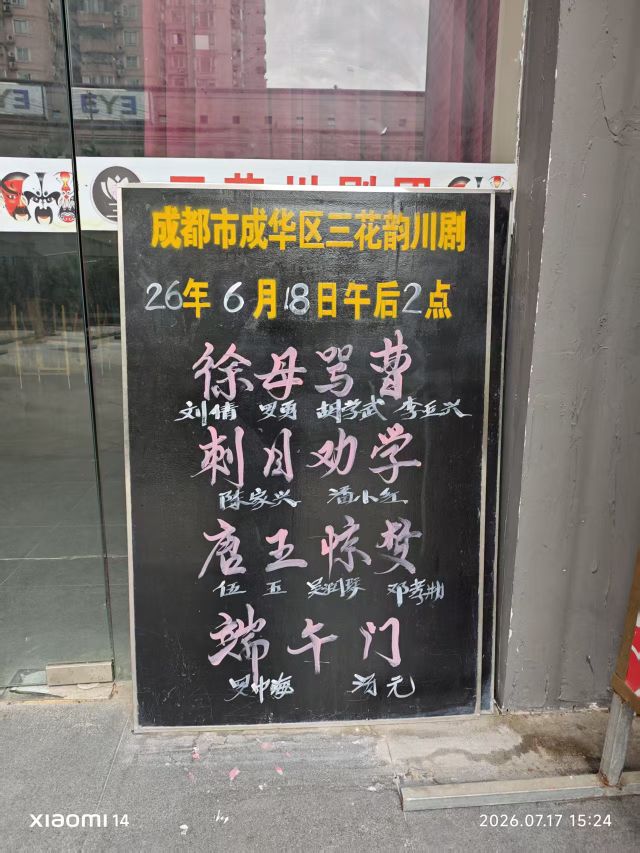 EYE
EYE
成都市成华区三花韵川剧
26年6月18日午后2点
徐母骂曹
刘倩 罗勇 胡学武 李丘兴
刺目劝学
陈家兴 潘小红
唐王惊梦
伍五
端午门
罗中海 汤元
XIAOMI 14
2026.07.17 15:24